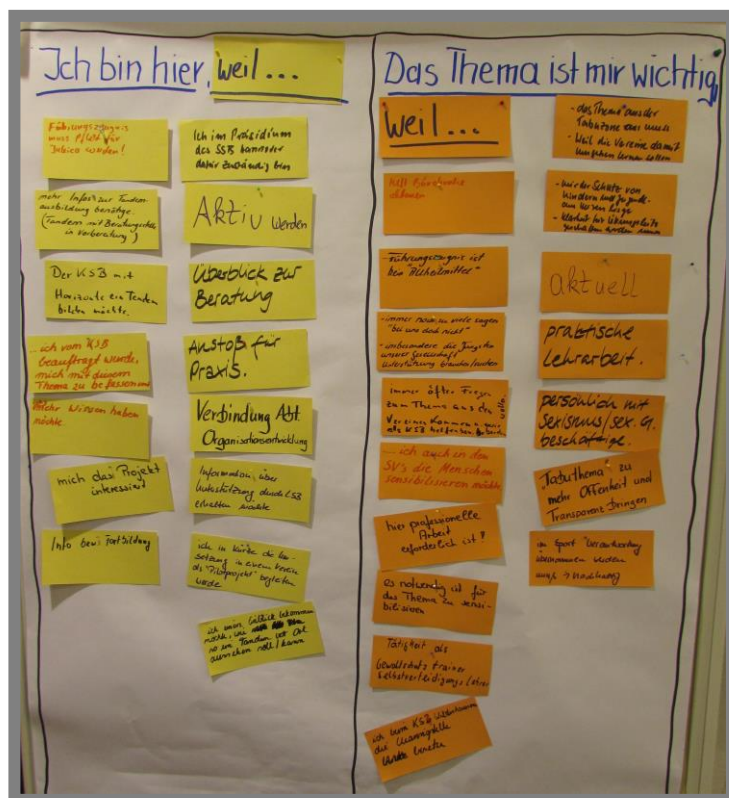 Ich bin hier, weil...
Führungszeugnis
muss Pflicht für
werden!
mehr Infos zur Tandem-
ausbildung benötige.
(Tandem mit Beratungsstelle
in Vorbereitung)
Der KSB mit
Horizonte ein Tandem
bilden möchte.
...ich vom KSB
beauftragt wurde,
mich mit diesem
Thema zu befassen
mehr Wissen haben
möchte.
mich das Projekt
interessiert
Info bzw. Fortbildung
Ich im Präsidium
des SSB
dafür zuständig bin
Aktiv werden
Überblick zur
Beratung
Anstoß für
Praxis.
Verbindung Abt.
Organisationsentwicklung
Information über
Unterstützung durch LSB
erhalten möchte
ich in Kürze die
in einem Verein
als "Pilotprojekt" begleiten
werde
ich einen Einblick bekommen
möchte, wie
so ein Tandem vor Ort
aussehen soll/kann
Das Thema ist mir wichtig,
weil...
Führungszeugnis ist
kein "Allheilmittel"
- immer noch zu viele sagen
"bei uns doch nicht"
- insbesondere die Jüngsten
unserer Gesellschaft
Unterstützung brauchen
immer öfter Fragen
zum Thema aus den
Vereinen kommen
als KSB helfen
...ich auch in den
SV's die Menschen
sensibilisieren möchte
hier professionelle
Arbeit
erforderlich ist!
es notwendig ist für
das Thema zu sensi-
bilisieren
Tätigkeit als
Gewaltschutztrainer
Selbstverteidigungslehrer
ich vom KSB
die
- das Thema aus der
Tabuzone raus muss
- Weil die Vereine damit
umgehen lernen sollen
- mir der Schutz von
Kindern und Jugendl.
am Herzen liege
- Klarheit
geschaffen werden muss
aktuell
praktische
Lehrarbeit.
persönlich mit
Sexismus/sex. G.
beschäftige.
"Tabuthema" zu
mehr Offenheit und
Transparenz bringen
im Sport Verantwortung
übernommen werden
muss